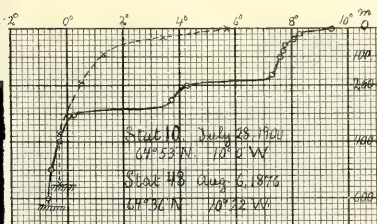 -2° 0° 2° 4° 6° 8° 10° m
0
100
200
400
600
Stat 10. July 28, 1900
64°53'N 10°0'W
Stat 48 Aug 6, 1876
64°36'N 10°22'W